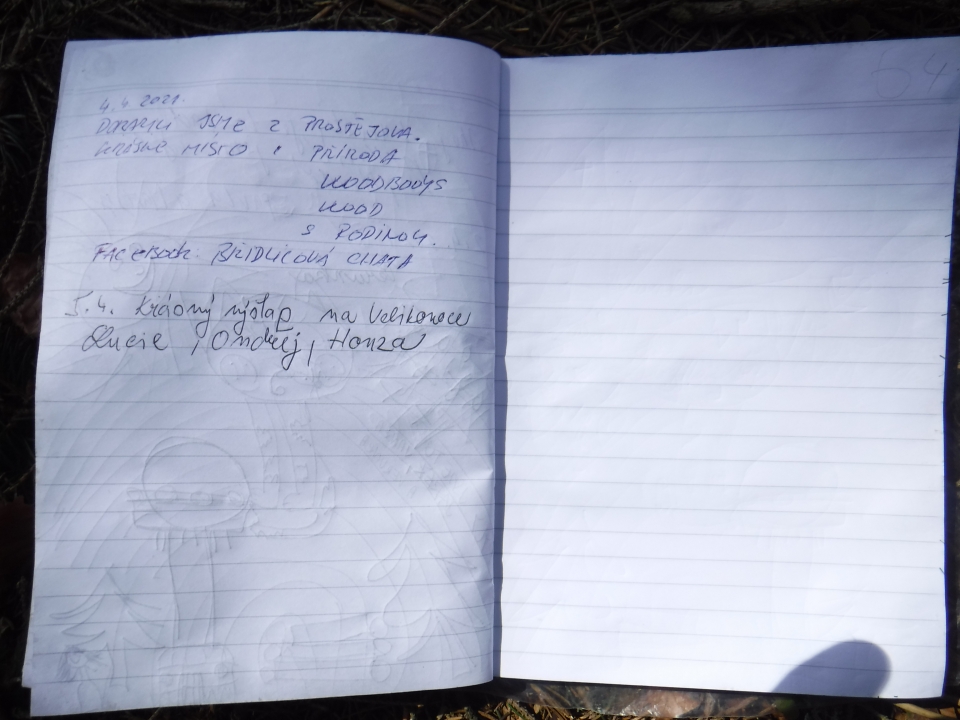 4.4.2021.
DORAZILI JSME Z PROSTĚJOVA.
KRÁSNÉ MÍSTO I PŘÍRODA
WOODBODYS
WOOD
S RODINOU.
FACEBOOK: BŘIDLICOVÁ CHATA
5.4. Krásný výšlap na Velikonoce
Lucie, Ondřej, Honza
54